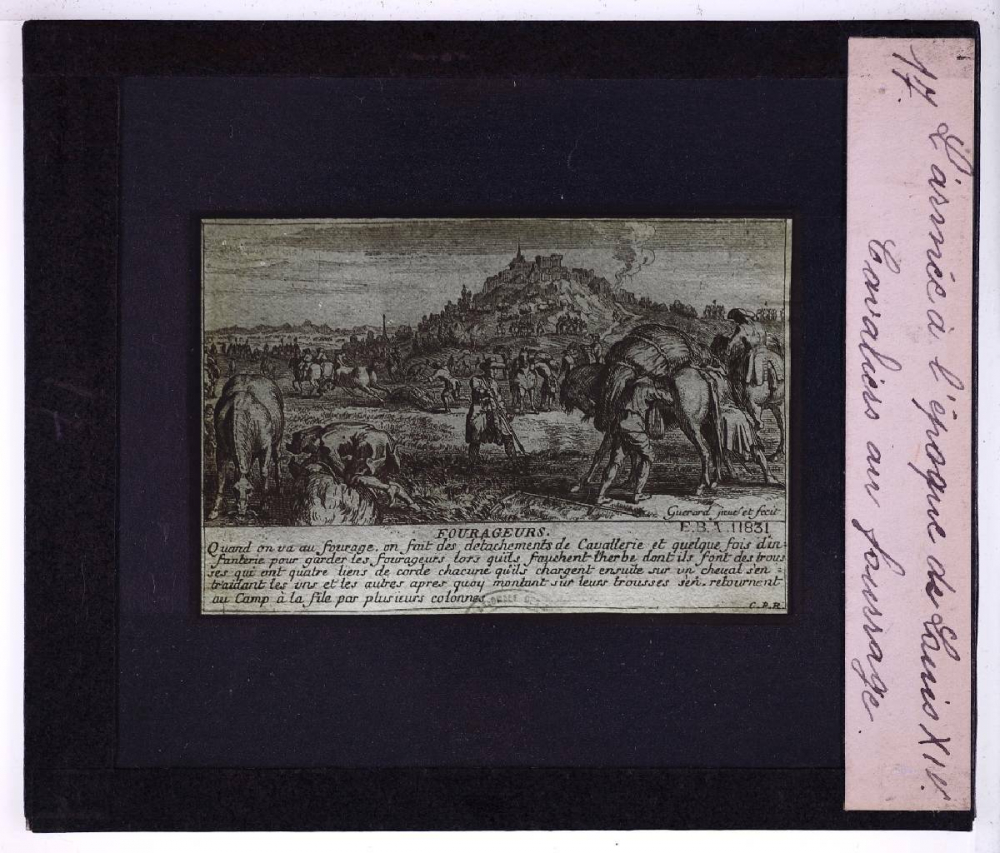 Guerard inue' et fecit
E.B.A. 11831
FOURAGEURS.
Quand on va au fourage. on fait des detachements de Cavallerie et quelque fois d'in=
fanterie pour garder les fourageurs lors qu'ils fauchent l'herbe dont ils font des trous
ses qui ont quatre liens de corde chacune qu'ils chargent ensuite sur un cheval s'en =
traidant les vns et les autres apres quoy montant sur leurs trousses s'en retournent
au Camp à la file par plusieurs colonnes
C.P.R.
17. L'armée à l'époque de Louis XIV.
Cavaliers au fourrage.